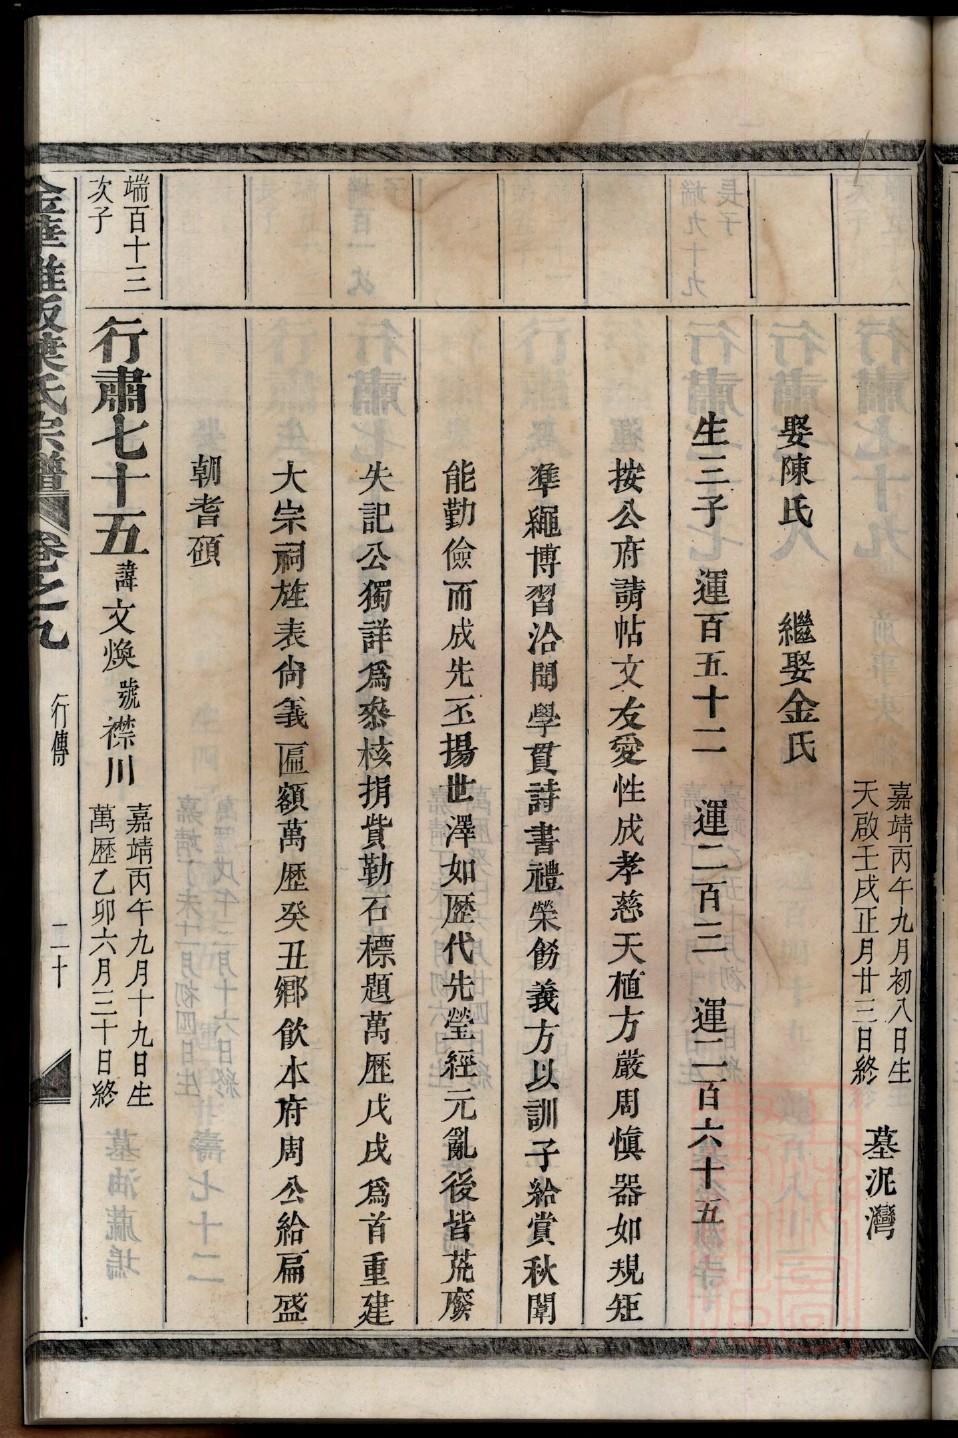 嘉靖丙午九月初八日生
天啟壬戌正月廿三日終
墓泥灣
娶陳氏 繼娶金氏
生三子 運百五十二 運二百三 運二百六十五
按公府請帖文友愛性成孝慈天植方嚴周慎器如規矩
準繩博習洽聞學貫詩書禮榮餝義方以訓子給賞秋闈
能勤儉而成先丕揚世澤如歷代先塋經元亂後皆荒廢
失記公獨詳爲叅核捐貲勒石標題萬歷戊戌爲首重建
大宗祠旌表尙義匾額萬歷癸丑鄉飲本府周公給扁盛
朝耆碩
端百十三
次子
行肅七十五 諱文煥 號襟川
嘉靖丙午九月十九日生
萬歷乙卯六月三十日終
葉氏宗譜 卷之九 行傳 二十